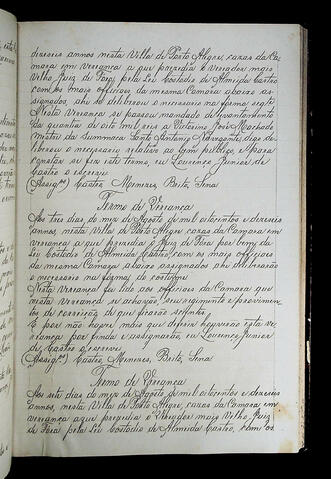 dezeseis annos nesta Villa de Porto Alegre, cazas da Ca-
mara em vereança a que prezedio o Vereador mais
Velho, Juiz de Fora, pela Lei Custodio de Almeida Castro
com os mais officiaes da mesma Camara abaixo as-
signados, ahi se deliberou o necessario na forma seg.te
Nesta Vereança se passou mandado de levantamento
da quantia de oito mil reis a José Machado
Mestre da Summaca Santo Antonio Navegante, digo de-
liberou o necessario relativo ao bem publico, e para
constar se fiz este termo, eu Lourenço Junior de
Castro o escrevi
(Assig.os) Castro, Menezes, Brito, Sena
Termo de Vereança
Aos tres dias do mez de Agosto de mil oitocentos e dezeseis
annos, nesta villa de Porto Alegre, cazas da Camara em
vereança a que prezidio o Juiz de Fora por
Lei Custodio de Almeida Castro, com os mais officiaes
da mesma Camara abaixo assignados ahi deliberarão
o necessario na forma do costume
Nesta Vereança fu lido aos officiaes da Camara que
nesta vereança se acharão, seu regimento e provimen-
tos de correição de que ficarão scientes.
E por não haver mais que deferir houverão esta ve-
reança por finda e assignarão, eu Lourenço Junior
de Castro o escrevi
(Assig.os) Castro, Menezes, Brito, Sena
Termo de Vereança
Aos sete dias do mez de Agosto de mil oitocentos e dezeseis
annos, nesta Villa de Porto Alegre, cazas da Camara em
vereança a que prezidio o Vereador mais Velho, Juiz
de Fora pela Lei Custodio de Almeida Castro, com os